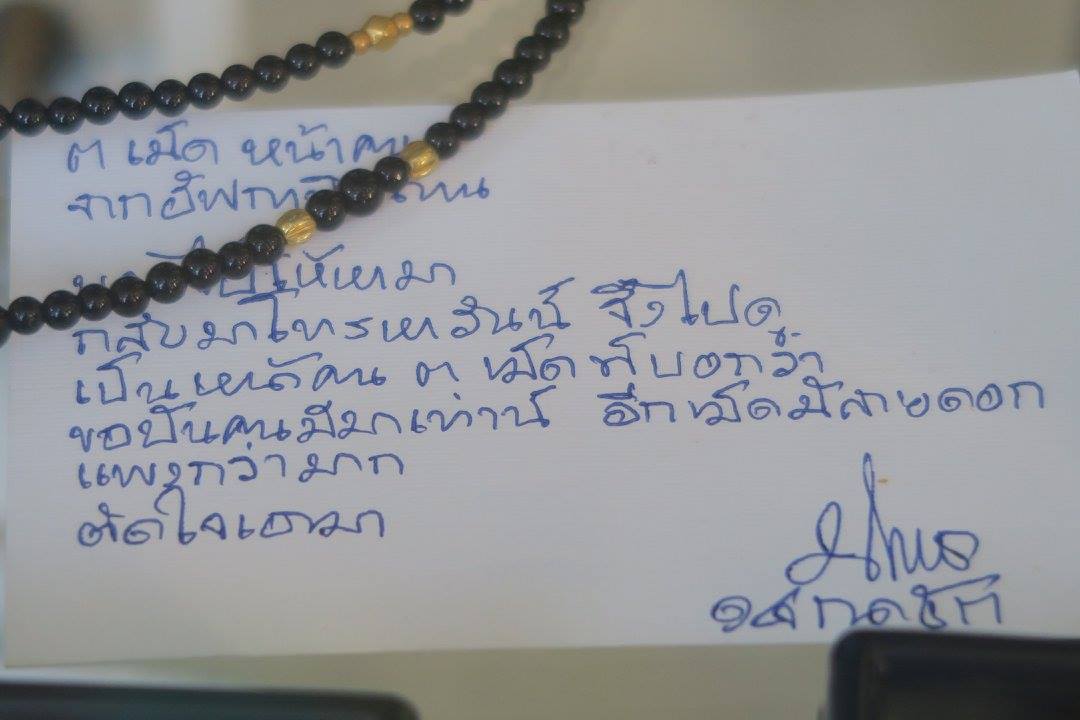 ๓ เม็ด หน้าคน
จากอัฟกานิสถาน
ให้เหมา
กลับมาโทรหาวันนี้ จึงไปดู
เป็นหน้าคน ๓ เม็ด พี่บอกว่า
ขอปันคุณมีมาเท่านี้ อีกเม็ดมีลายดอก
แพงกว่ามาก
ตัดใจเอามา